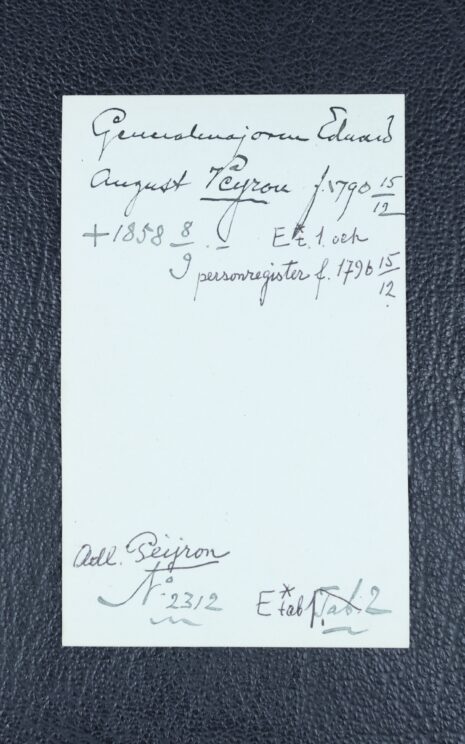 Generalmajoren Eduard
August Peyron f. 1790 15/12
+ 1858 8/9. – E* t. 1. och
personregister f. 1796 15/12.
Adl. Peijron
No. 2312 E* tab 1. Tab. 2